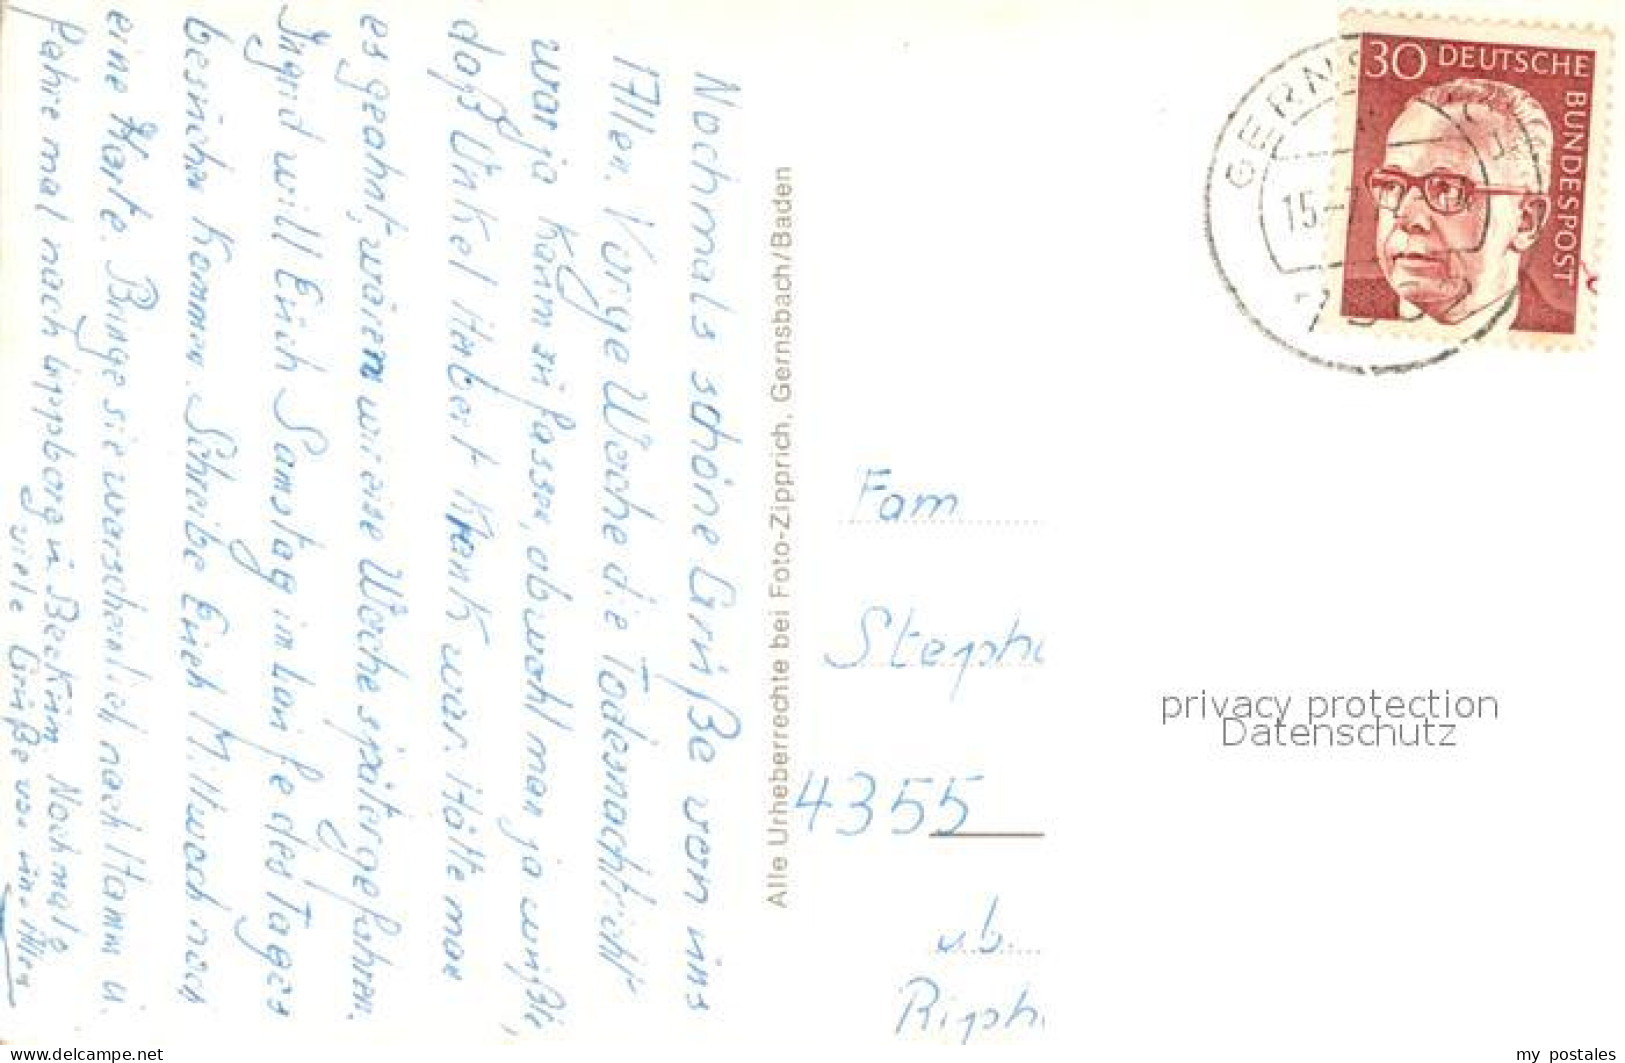 Nochmals schöne Grüße von uns
Allen. Vorige Woche die Todesnachricht
war ja kaum zu fassen, obwohl man ja wußte,
daß Onkel Herbert krank war. Hätte man
es geahnt, wären wir eine Woche später gefahren.
Ingrid will Erich Samstag im Laufe des Tages
besuchen kommen. Schreibe Erich Mittwoch noch
eine Karte. Bringe sie warscheinlich nach Hamm u.
fahre mal nach Lippborg u Beckum Nochmals
viele Grüße von uns Allen
Alle Urheberrechte bei Foto-Zipprich, Gernsbach/Baden
30 DEUTSCHE
BUNDESPOST
GERNS
15.-7
Fam
Steph
4355
privacy protection
Datenschutz
my_postales
delcampe.net/website